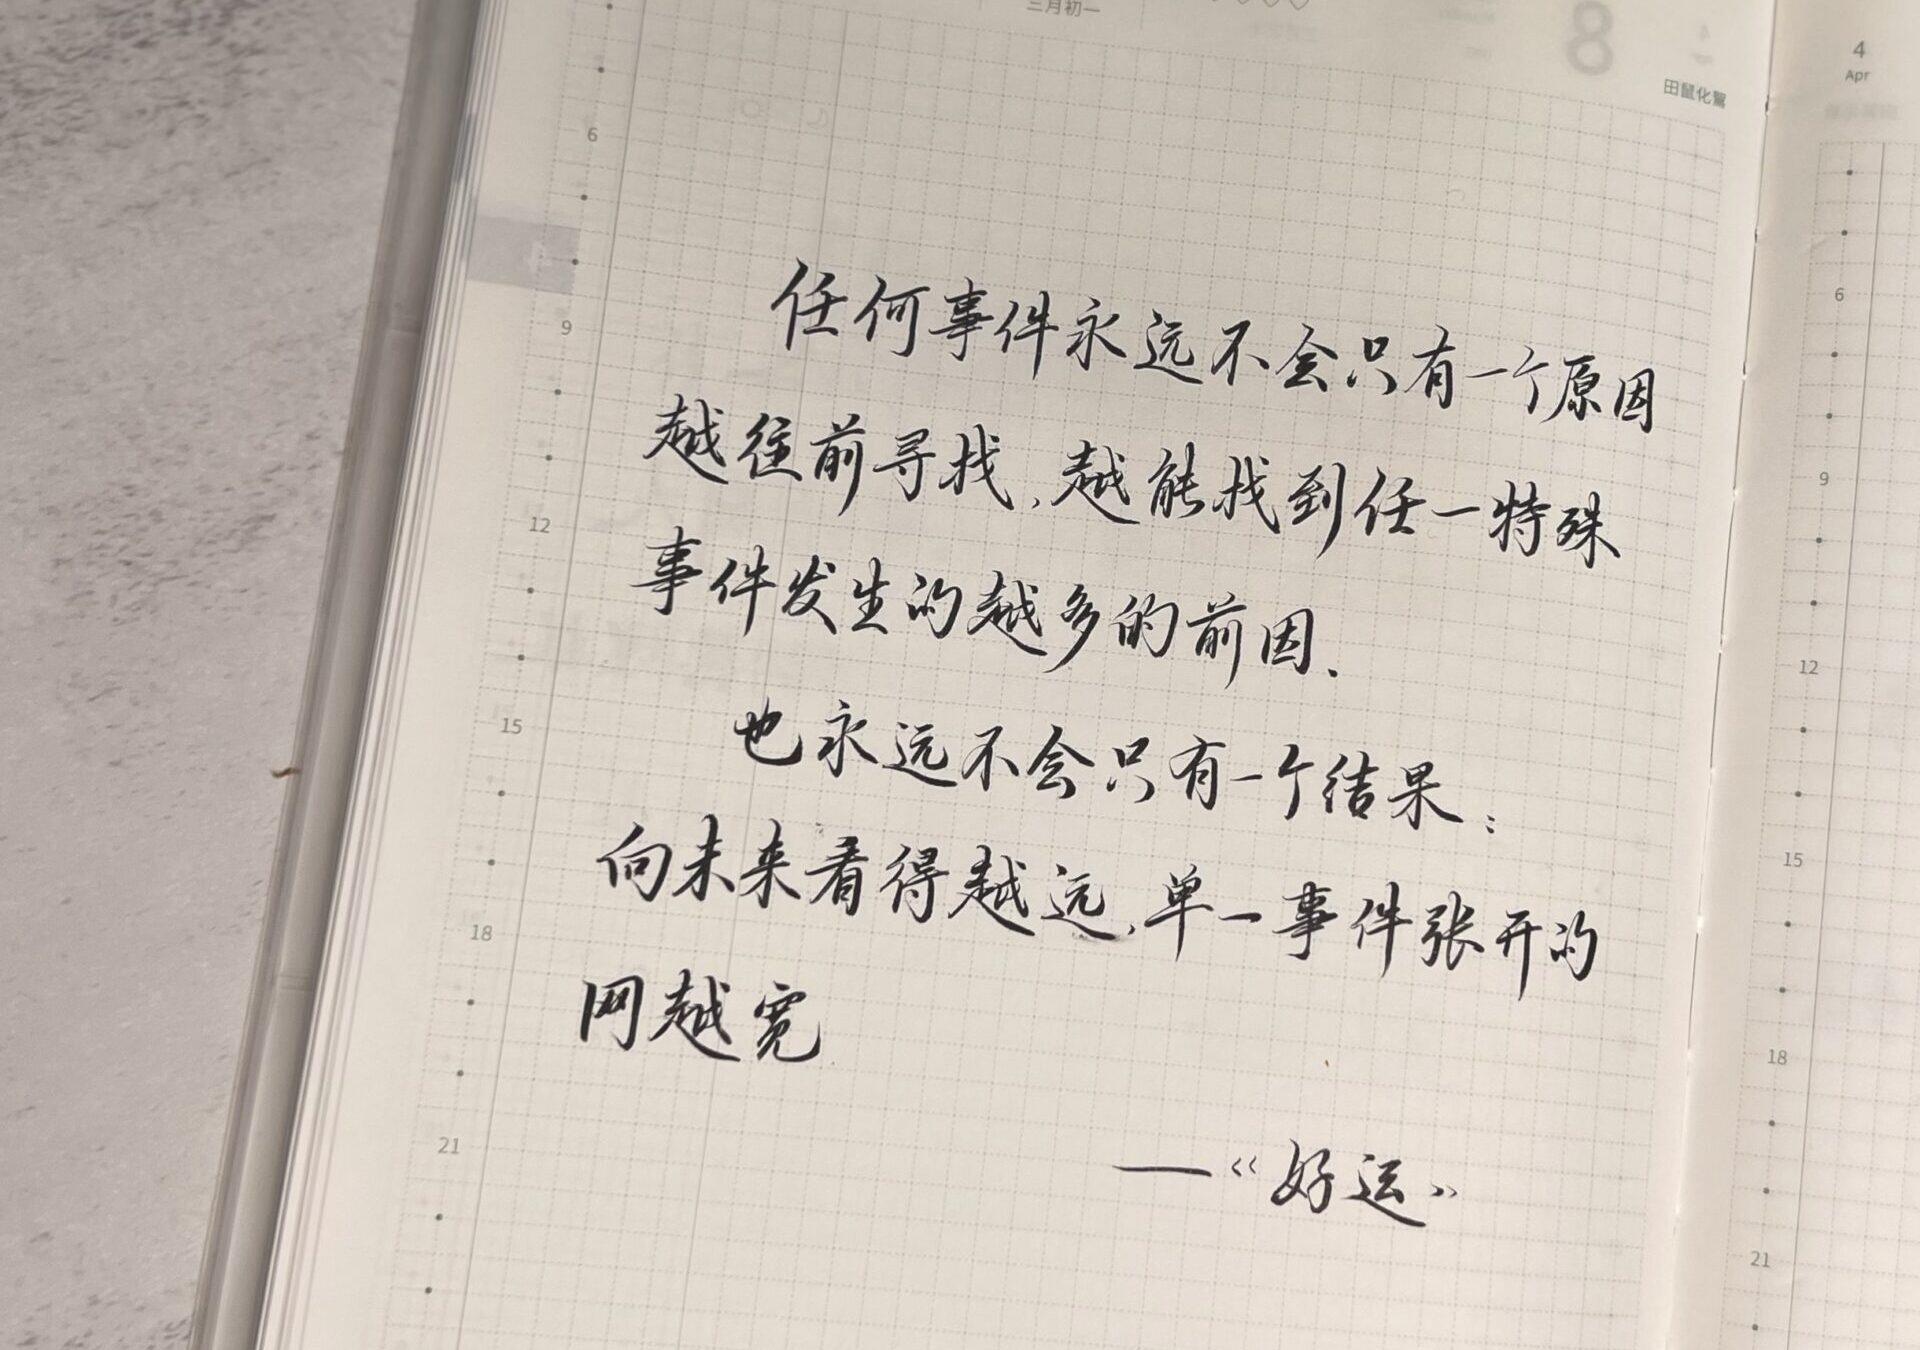 三月初一
8
4
田鼠化鴽
4
Apr
6
9
12
15
18
21
任何事件永远不会只有一个原因
越往前寻找、越能找到任一特殊
事件发生的越多的前因、
也永远不会只有一个结果；
向未来看得越远，单一事件张开的
网越宽
——《好运》
6
9
12
15
18
21